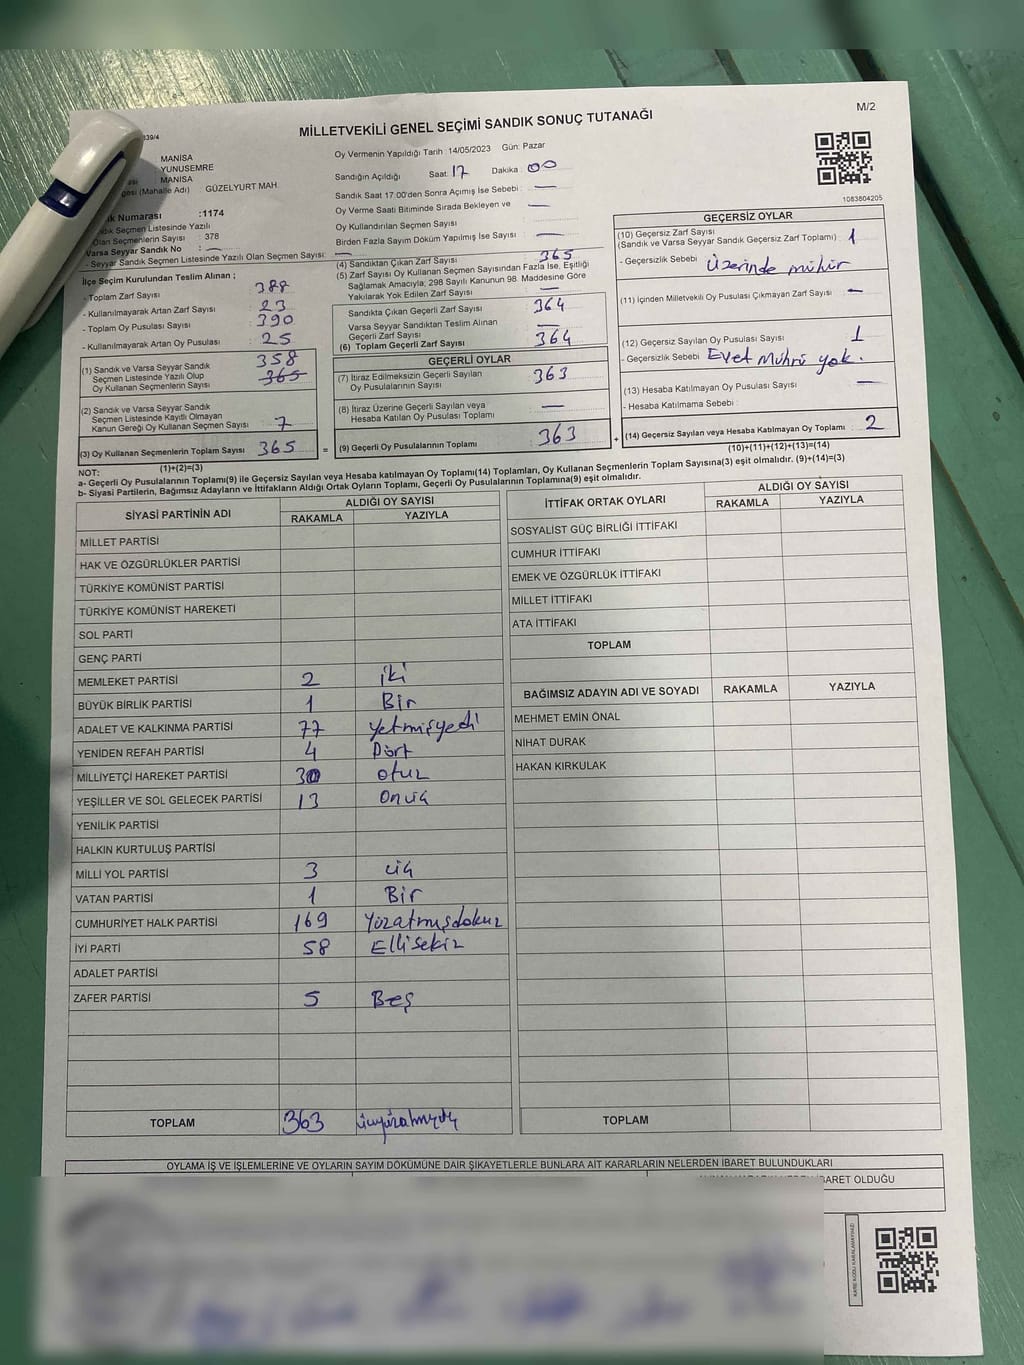 M/2
139/4
MİLLETVEKİLİ GENEL SEÇİMİ SANDIK SONUÇ TUTANAĞI
MANİSA
YUNUSEMRE
MANİSA
(Mahalle Adı) GÜZELYURT MAH.
Numarası :1174
Seçmen Listesinde Yazılı
Olan Seçmenlerin Sayısı : 378
Varsa Seyyar Sandık No : —
- Seyyar Sandık Seçmen Listesinde Yazılı Olan Seçmen Sayısı: —
Oy Vermenin Yapıldığı Tarih :14/05/2023 Gün: Pazar
Sandığın Açıldığı Saat: 17 Dakika : 00
Sandık Saat 17:00'den Sonra Açımış İse Sebebi : —
Oy Verme Saati Bitiminde Sırada Bekleyen ve
Oy Kullandırılan Seçmen Sayısı : —
Birden Fazla Sayım Döküm Yapılmış İse Sayısı : —
1083804205
İlçe Seçim Kurulundan Teslim Alınan ;
- Toplam Zarf Sayısı : 388
- Kullanılmayarak Artan Zarf Sayısı : 23
- Toplam Oy Pusulası Sayısı : 390
- Kullanılmayarak Artan Oy Pusulası : 25
(1) Sandık ve Varsa Seyyar Sandık
Seçmen Listesinde Yazılı Olup
Oy Kullanan Seçmenlerin Sayısı 358 365
(2) Sandık ve Varsa Seyyar Sandık
Seçmen Listesinde Kayıtlı Olmayan
Kanun Gereği Oy Kullanan Seçmen Sayısı 7
(3) Oy Kullanan Seçmenlerin Toplam Sayısı 365
(1)+(2)=(3)
(4) Sandıktan Çıkan Zarf Sayısı : 365
(5) Zarf Sayısı Oy Kullanan Seçmen Sayısından Fazla İse, Eşitliği
Sağlamak Amacıyla; 298 Sayılı Kanunun 98. Maddesine Göre
Yakılarak Yok Edilen Zarf Sayısı : —
Sandıkta Çıkan Geçerli Zarf Sayısı 364
Varsa Seyyar Sandıktan Teslim Alınan
Geçerli Zarf Sayısı —
(6) Toplam Geçerli Zarf Sayısı 364
GEÇERLİ OYLAR
(7) İtiraz Edilmeksizin Geçerli Sayılan
Oy Pusulalarının Sayısı 363
(8) İtiraz Üzerine Geçerli Sayılan veya
Hesaba Katılan Oy Pusulası Toplamı —
= (9) Geçerli Oy Pusulalarının Toplamı 363
GEÇERSİZ OYLAR
(10) Geçersiz Zarf Sayısı
(Sandık ve Varsa Seyyar Sandık Geçersiz Zarf Toplamı) 1
- Geçersizlik Sebebi : Üzerinde mühür
(11) İçinden Milletvekili Oy Pusulası Çıkmayan Zarf Sayısı : —
(12) Geçersiz Sayılan Oy Pusulası Sayısı : 1
- Geçersizlik Sebebi : Evet Mührü yok.
(13) Hesaba Katılmayan Oy Pusulası Sayısı : —
- Hesaba Katılmama Sebebi :
+ (14) Geçersiz Sayılan veya Hesaba Katılmayan Oy Toplamı : 2
(10)+(11)+(12)+(13)=(14)
NOT:
a- Geçerli Oy Pusulalarının Toplamı(9) ile Geçersiz Sayılan veya Hesaba katılmayan Oy Toplamı(14) Toplamları, Oy Kullanan Seçmenlerin Toplam Sayısına(3) eşit olmalıdır. (9)+(14)=(3)
b- Siyasi Partilerin, Bağımsız Adayların ve İttifakların Aldığı Ortak Oyların Toplamı, Geçerli Oy Pusulalarının Toplamına(9) eşit olmalıdır.
SİYASİ PARTİNİN ADI ALDIĞI OY SAYISI
RAKAMLA YAZIYLA
MİLLET PARTİSİ
HAK VE ÖZGÜRLÜKLER PARTİSİ
TÜRKİYE KOMÜNİST PARTİSİ
TÜRKİYE KOMÜNİST HAREKETİ
SOL PARTİ
GENÇ PARTİ
MEMLEKET PARTİSİ 2 iki
BÜYÜK BİRLİK PARTİSİ 1 Bir
ADALET VE KALKINMA PARTİSİ 77 Yetmişyedi
YENİDEN REFAH PARTİSİ 4 Dört
MİLLİYETÇİ HAREKET PARTİSİ 30 otuz
YEŞİLLER VE SOL GELECEK PARTİSİ 13 Onüç
YENİLİK PARTİSİ
HALKIN KURTULUŞ PARTİSİ
MİLLİ YOL PARTİSİ 3 üç
VATAN PARTİSİ 1 Bir
CUMHURİYET HALK PARTİSİ 169 Yüzatmışdokuz
İYİ PARTİ 58 Ellisekiz
ADALET PARTİSİ
ZAFER PARTİSİ 5 Beş
TOPLAM 363
İTTİFAK ORTAK OYLARI ALDIĞI OY SAYISI
RAKAMLA YAZIYLA
SOSYALİST GÜÇ BİRLİĞİ İTTİFAKI
CUMHUR İTTİFAKI
EMEK VE ÖZGÜRLÜK İTTİFAKI
MİLLET İTTİFAKI
ATA İTTİFAKI
TOPLAM
BAĞIMSIZ ADAYIN ADI VE SOYADI RAKAMLA YAZIYLA
MEHMET EMİN ÖNAL
NİHAT DURAK
HAKAN KIRKULAK
TOPLAM
OYLAMA İŞ VE İŞLEMLERİNE VE OYLARIN SAYIM DÖKÜMÜNE DAİR ŞİKAYETLERLE BUNLARA AİT KARARLARIN NELERDEN İBARET BULUNDUKLARI
İBARET OLDUĞU
KARE KODU KARALAMAYINIZ!